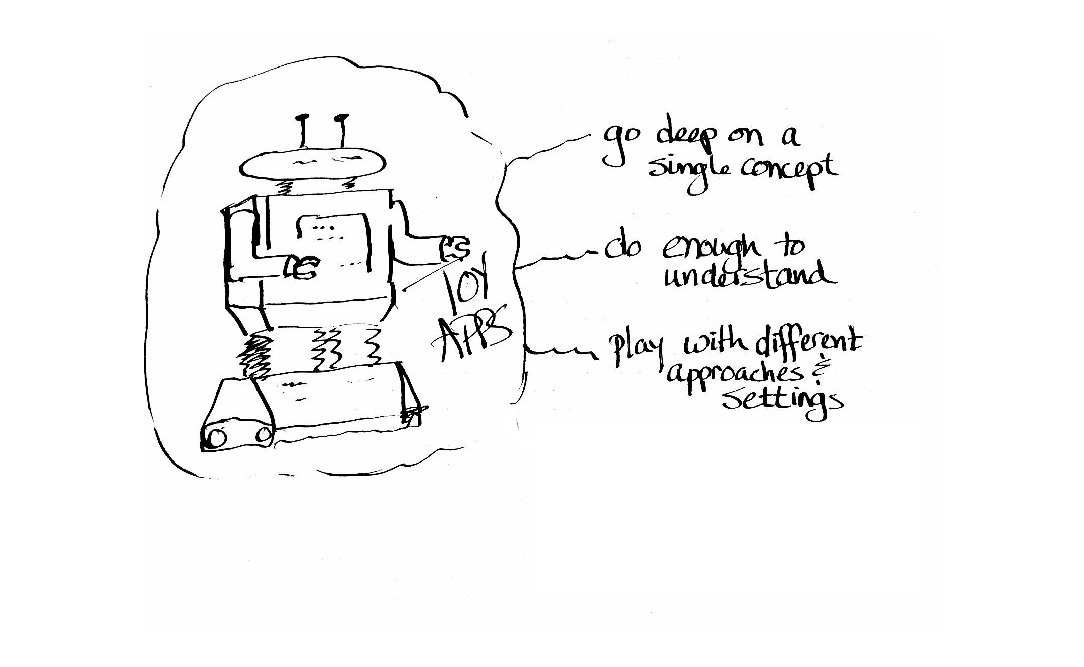 go deep on a
single concept
do enough to
understand
TOY
APPS
play with different
approaches &
settings